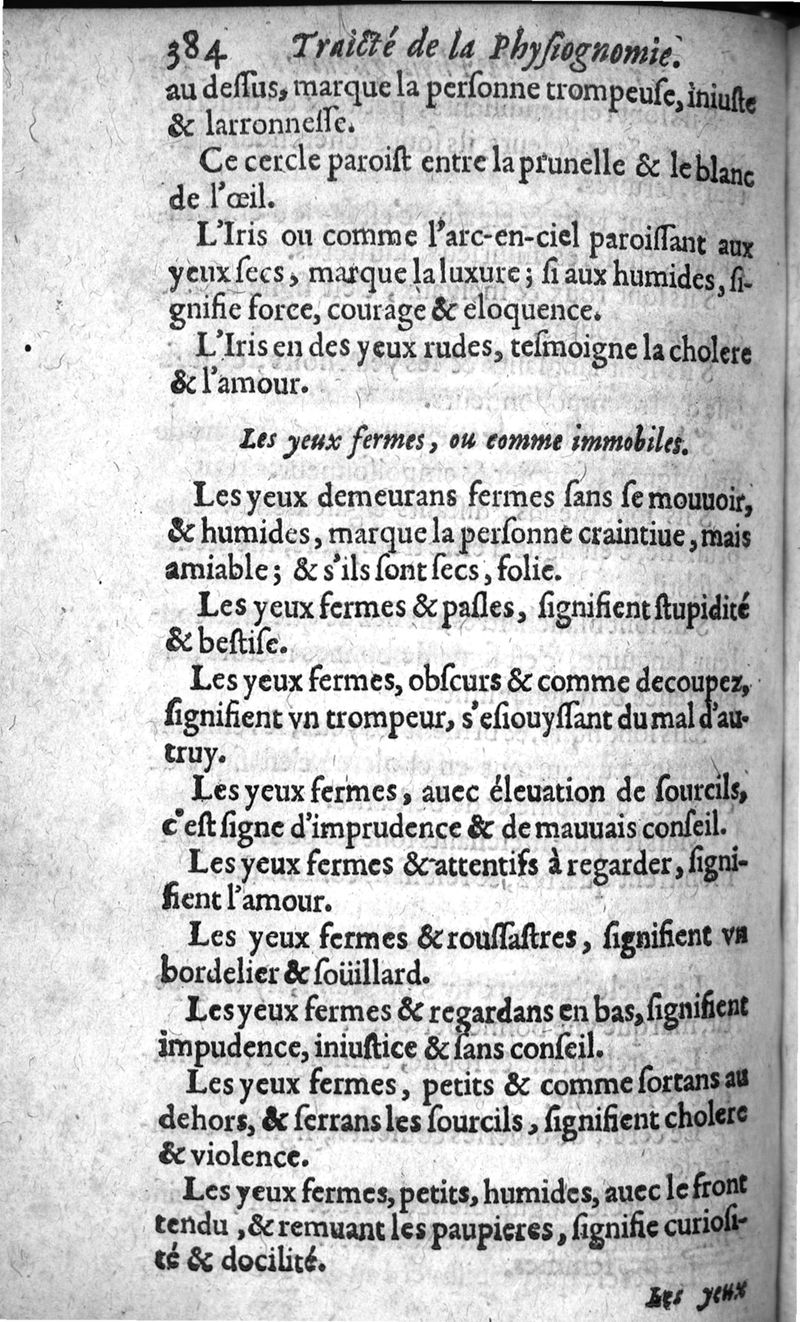 384 Traicté de la Phyſiognomie.
au deſſus, marque la perſonne trompeuſe, iniuſte
& larronneſſe.
Ce cercle paroiſt entre la prunelle & le blanc
de l'œil.
L'Iris ou comme l'arc-en-ciel paroiſſant aux
yeux ſecs, marque la luxure; ſi aux humides, ſi-
gnifie force, courage & eloquence.
L'Iris en des yeux rudes, teſmoigne la cholere
& l'amour.
Les yeux fermes, ou comme immobiles.
Les yeux demeurans fermes ſans ſe mouuoir,
& humides, marque la perſonne craintiue, mais
amiable; & s'ils ſont ſecs, folie.
Les yeux fermes & paſles, ſignifient ſtupidité
& beſtiſe.
Les yeux fermes, obſcurs & comme decoupez,
ſignifient vn trompeur, s'eſiouyſſant du mal d'au-
truy.
Les yeux fermes, auec éleuation de ſourcils,
c'eſt ſigne d'imprudence & de mauuais conſeil.
Les yeux fermes & attentifs à regarder, ſigni-
fient l'amour.
Les yeux fermes & rouſſaſtres, ſignifient vn
bordelier & ſoüillard.
Les yeux fermes & regardans en bas, ſignifient
impudence, iniuſtice & ſans conſeil.
Les yeux fermes, petits & comme ſortans au
dehors, & ſerrans les ſourcils, ſignifient cholere
& violence.
Les yeux fermes, petits, humides, auec le front
tendu, & remuant les paupieres, ſignifie curioſi-
té & docilité.
Les yeux